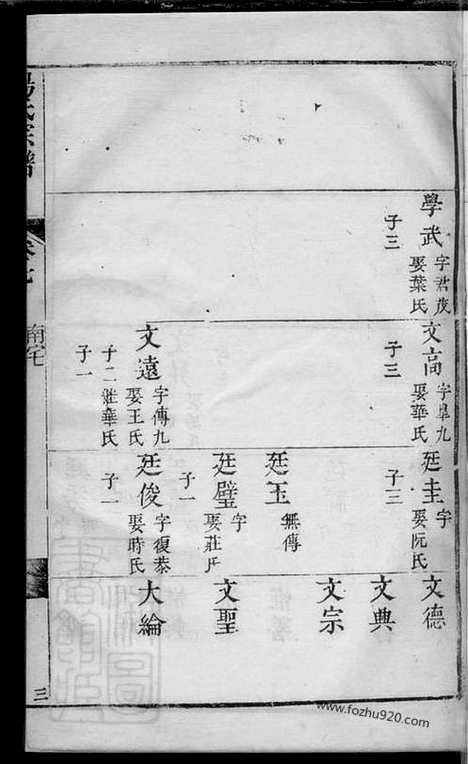 學武
字君茂
娶葉氏
子三
文高
字皐九
娶華氏
子三
文遠
字傳九
娶王氏
子二繼華氏
子一
廷圭
字
娶阮氏
子三
廷玉
無傳
廷璧
字
娶莊氏
子一
廷俊
字復泰
娶時氏
子一
文德
文典
文宗
文聖
大綸
氏宗譜
卷七
南宅
三
www.fozhu920.com